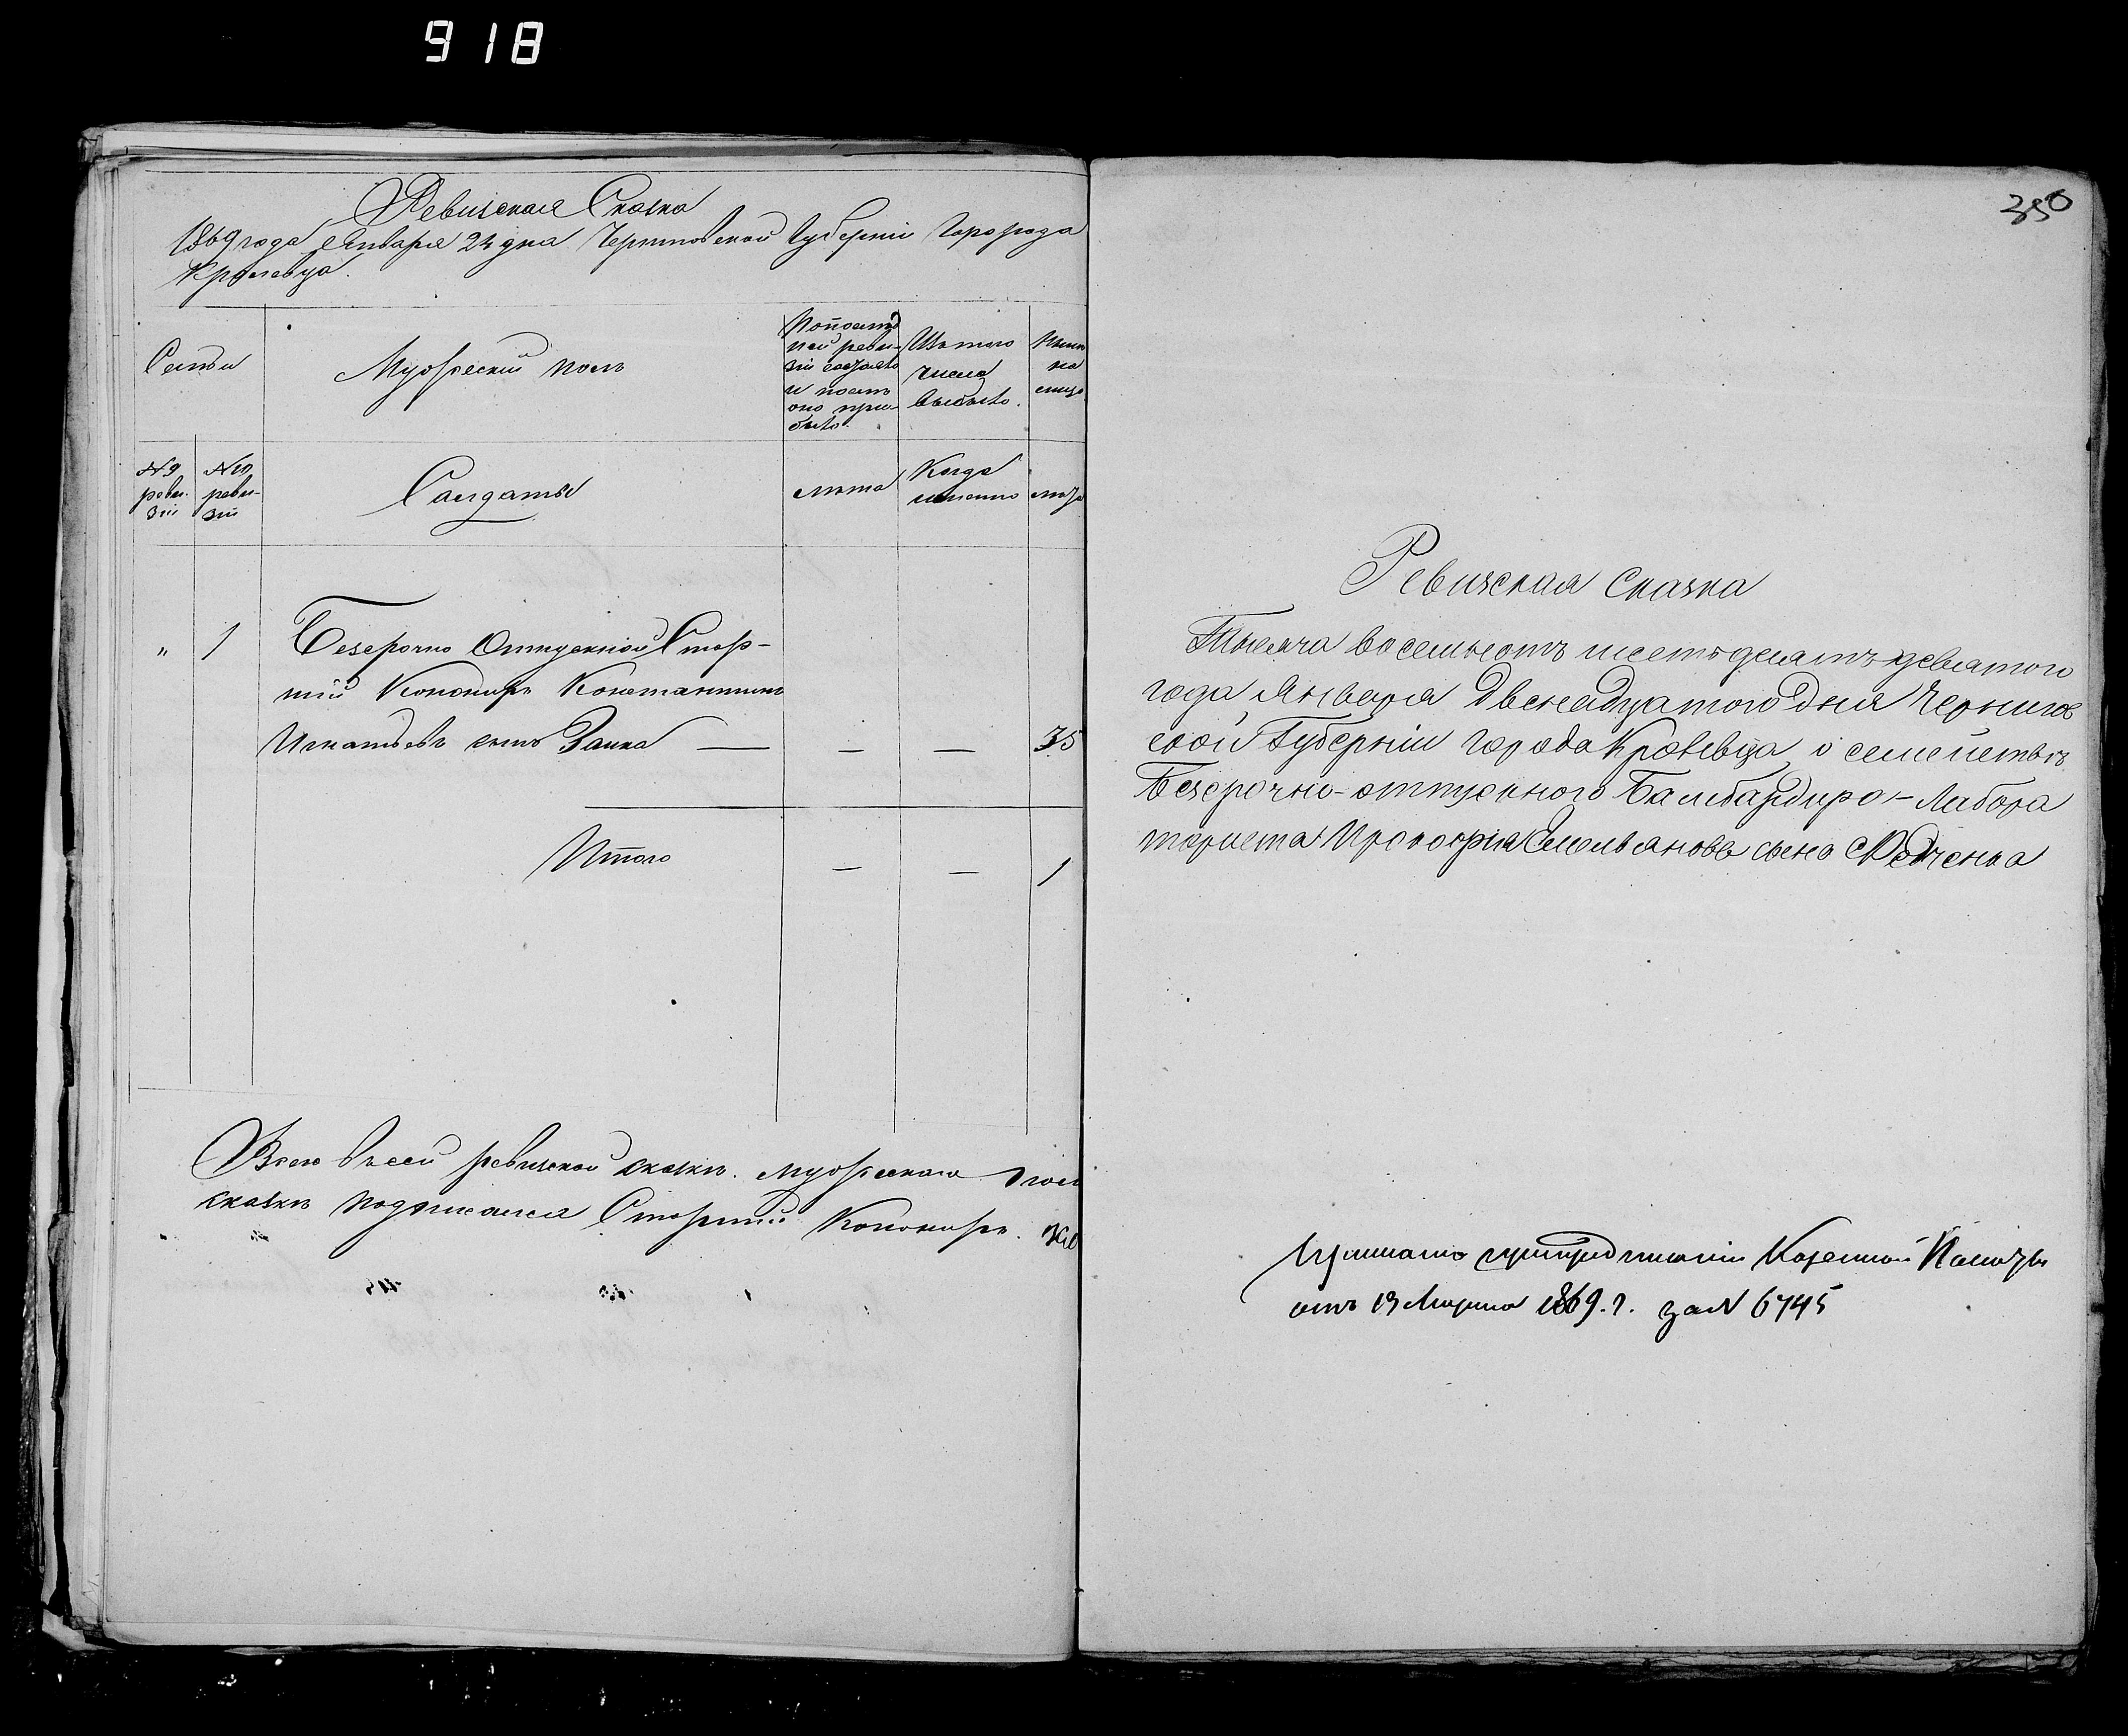 918
Ревизская Сказка
1869 года Января 23 дня Черниговской Губерніи Города
Кролевца.
Семьи
Мужескій полъ
По послѣд
ней реви-
зіи состояло
и послѣ
оно при-
было.
Изъ того
числа
выбыло.
Нынѣ
на
лицо
№ 9
реви-
зіи
№ 10
реви-
зіи
Салдаты
лѣта
Когда
именно
лѣта
„ 1 Безсрочно Отпускной Стар-
шій Канониръ Константинъ
Игнатьевъ сынъ Заика — — — 35
Итого — — 1
Всего въ сей ревизской сказкѣ мужескаго 1
сказкѣ подписался Старшій Канониръ
350
Ревизская Сказка
Тысяча восемьсотъ шестьдесятъ девятого
года Января двенадцатого дня Чернигов
ской Губерніи города Кролевца о семействѣ
Безсрочно-отпускного Бамбардиро-Лабора
ториста Прокофія Емельянова сына
Принято предписаніи Казенной Палаты
отъ 13 Марта 1869.г. за № 6745